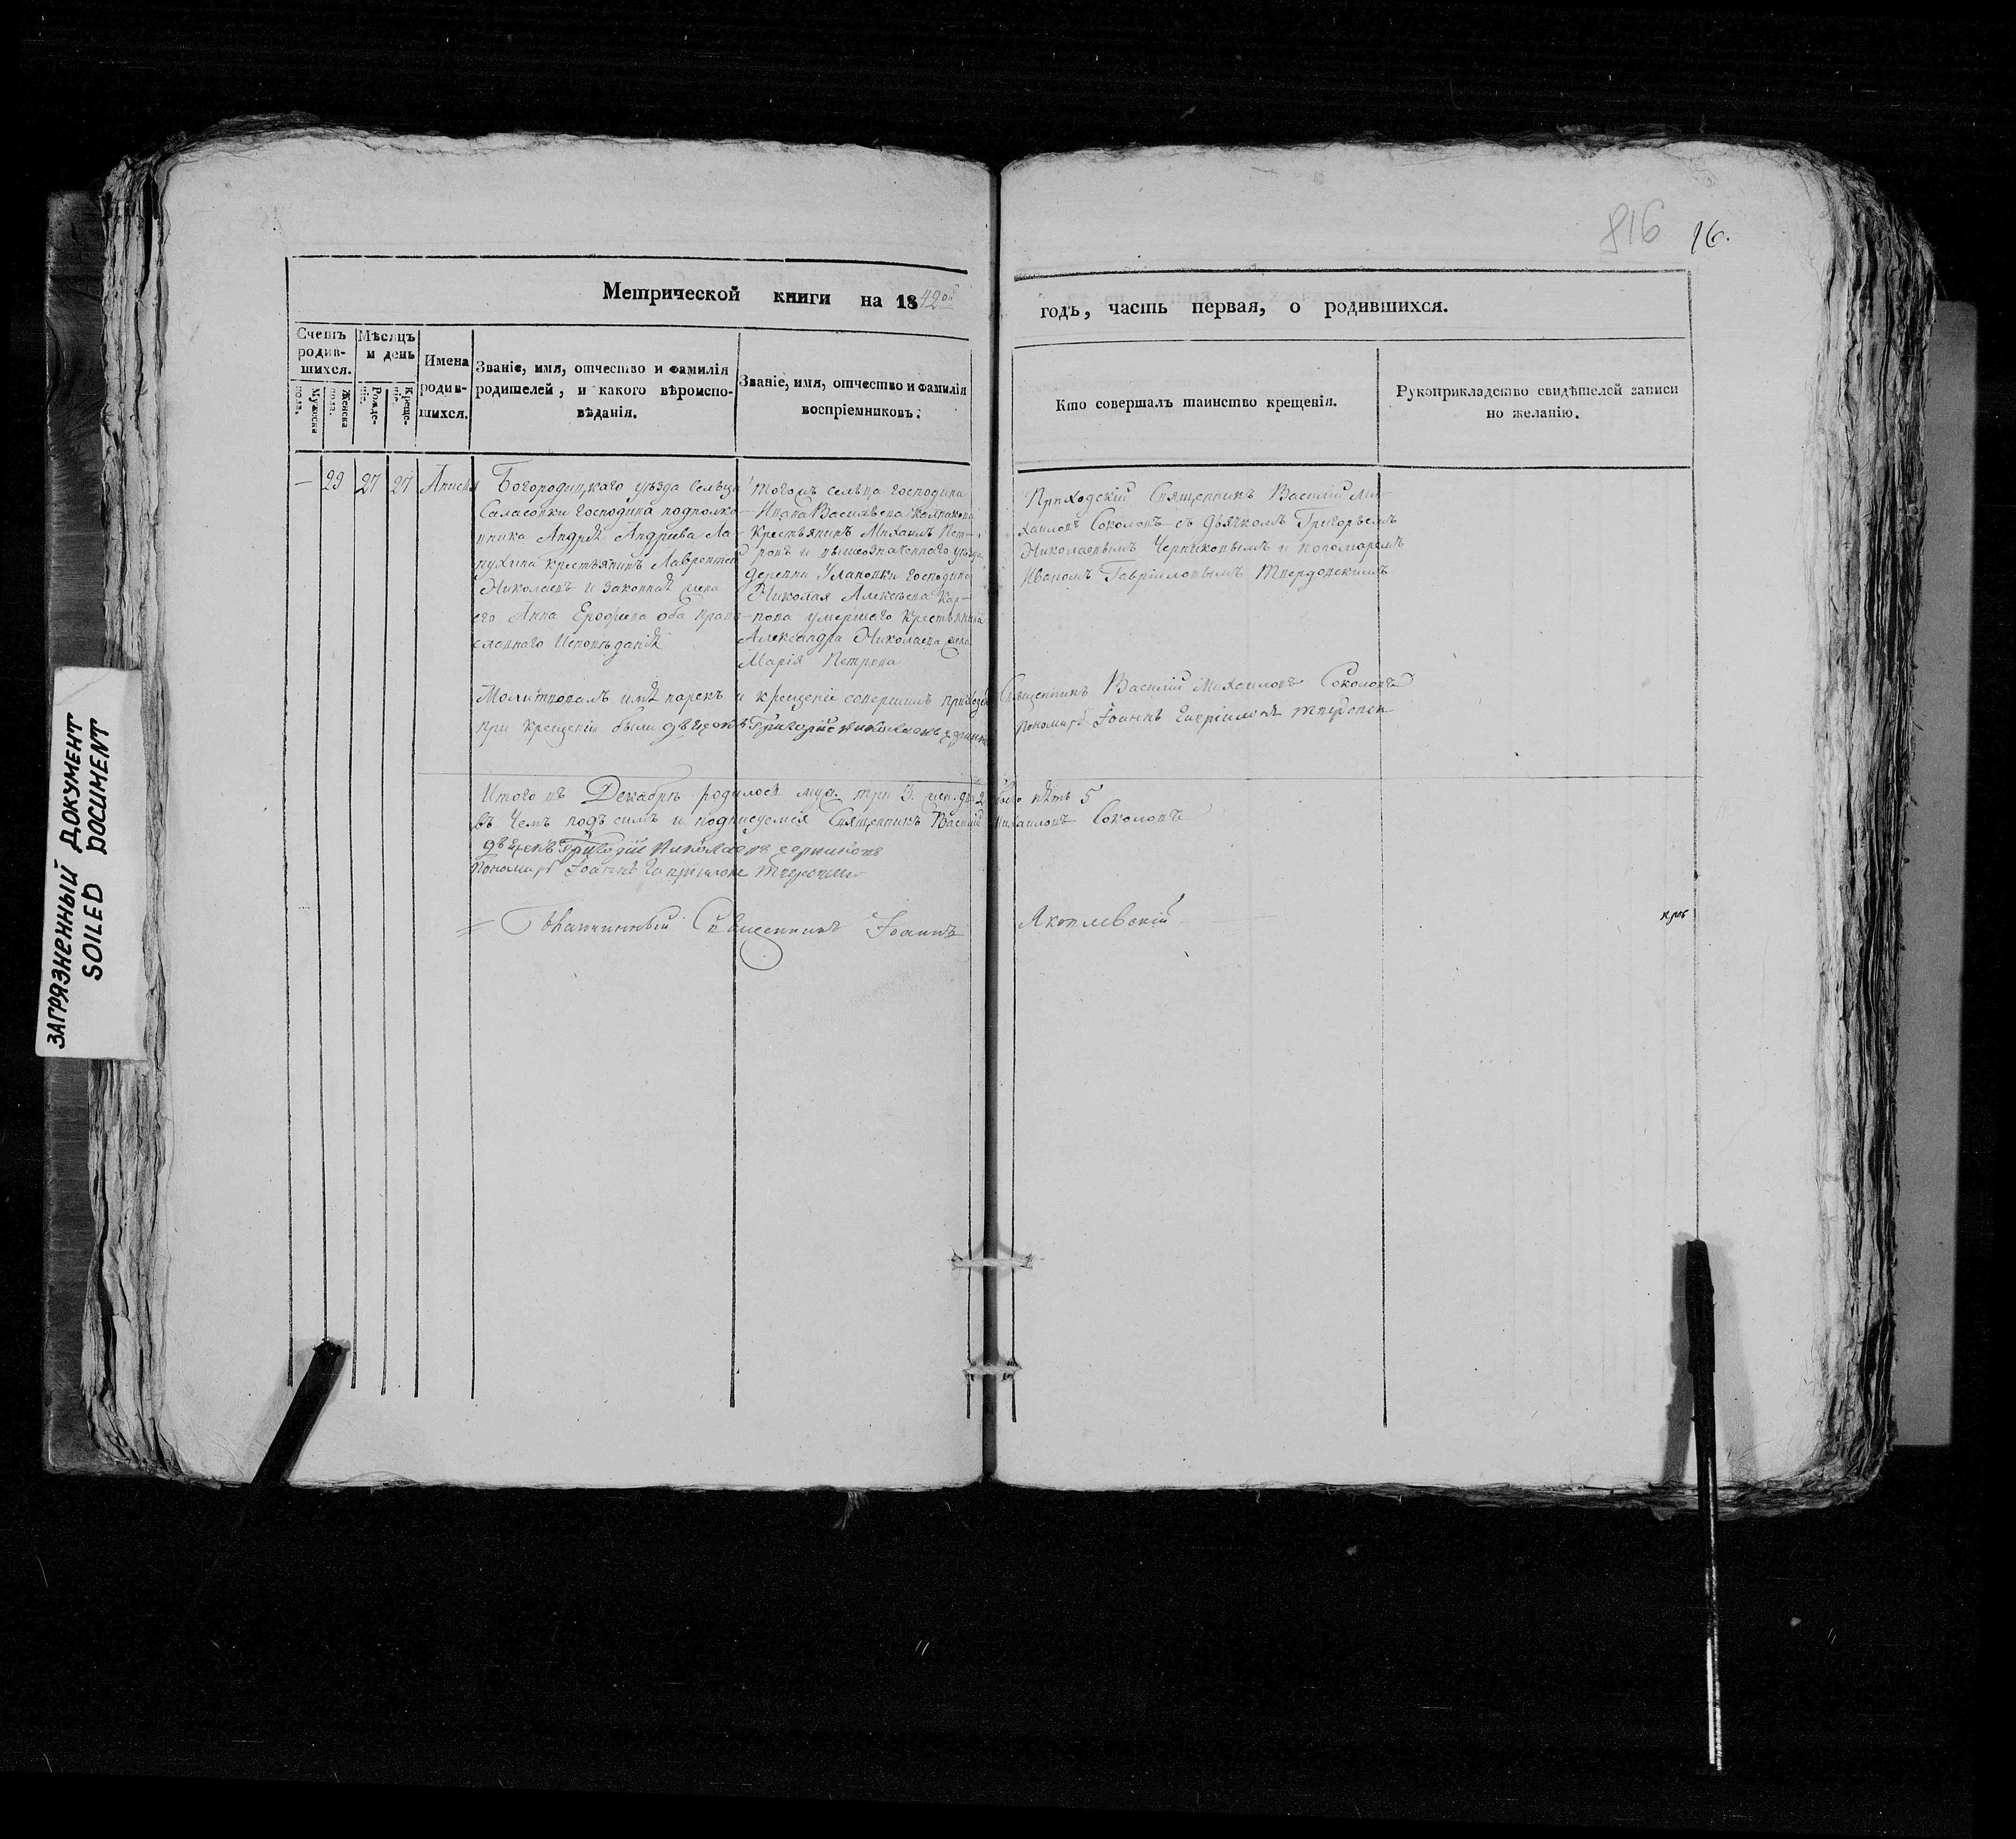 816 16.
Метрической книги на 1842ой
годъ, часть первая, о родившихся.
Счетъ родив-шихся.
Мужеска пола.
Женска пола.
Мѣсяцъ и день
Рожде-нія.
Креще-нія.
Имена родив-шихся.
Званіе, имя, отчество и фамилія
родителей, и какого вѣроиспо-
вѣданія.
Званіе, имя, отчество и фамилія
воспріемниковъ.
Кто совершалъ таинство крещенія.
Рукоприкладство свидѣтелей записи
по желанію.
— 29 27 27
Богородицкаго уѣзда Сельца
Господина подполко-
вника Андрея Андреева Ло-
пухина крестьянинъ Лаврентей
Николаевъ и законная жена
его Анна Ерофеева оба право-
славнаго Исповѣданія
тогожъ сельца Господина
Ивана Васильева Колпакова
Крестьянинъ Михаилъ Пет-
ровъ и вышеозначеннаго уѣзда
деревни Улановки Господина
Николая Алексѣева Кар-
пова умершаго Крестьянина
Александра Николаева жена
Марія Петрова
Приходскій Священникъ Василій Ми-
хаиловъ Соколовъ съ дьячкомъ Григорьемъ
Николаевымъ Черниковымъ и пономаремъ
Иваномъ Гавріиловымъ Твердонскимъ
Молитвовалъ имя нарекъ и крещеніе совершилъ приходск Священникъ Василій Михаиловъ Соколовъ
При Крещеніи были дьячекъ Григорій Николаевъ
Пономарь Іоаннъ Гавріиловъ
Итого въ Декабрѣ родилось муж. три 3. жен. два 2 всего пять 5
въ Чемъ подъ симъ и подписуемся Священникъ Василій Михаиловъ Соколовъ
дьячекъ Григорій Николаевъ Черниковъ
Пономарь Іоаннъ Гавріиловъ
Благочинный Священникъ Іоаннъ Яковлевскій
ЗАГРЯЗНЕННЫЙ ДОКУМЕНТ
SOILED DOCUMENT